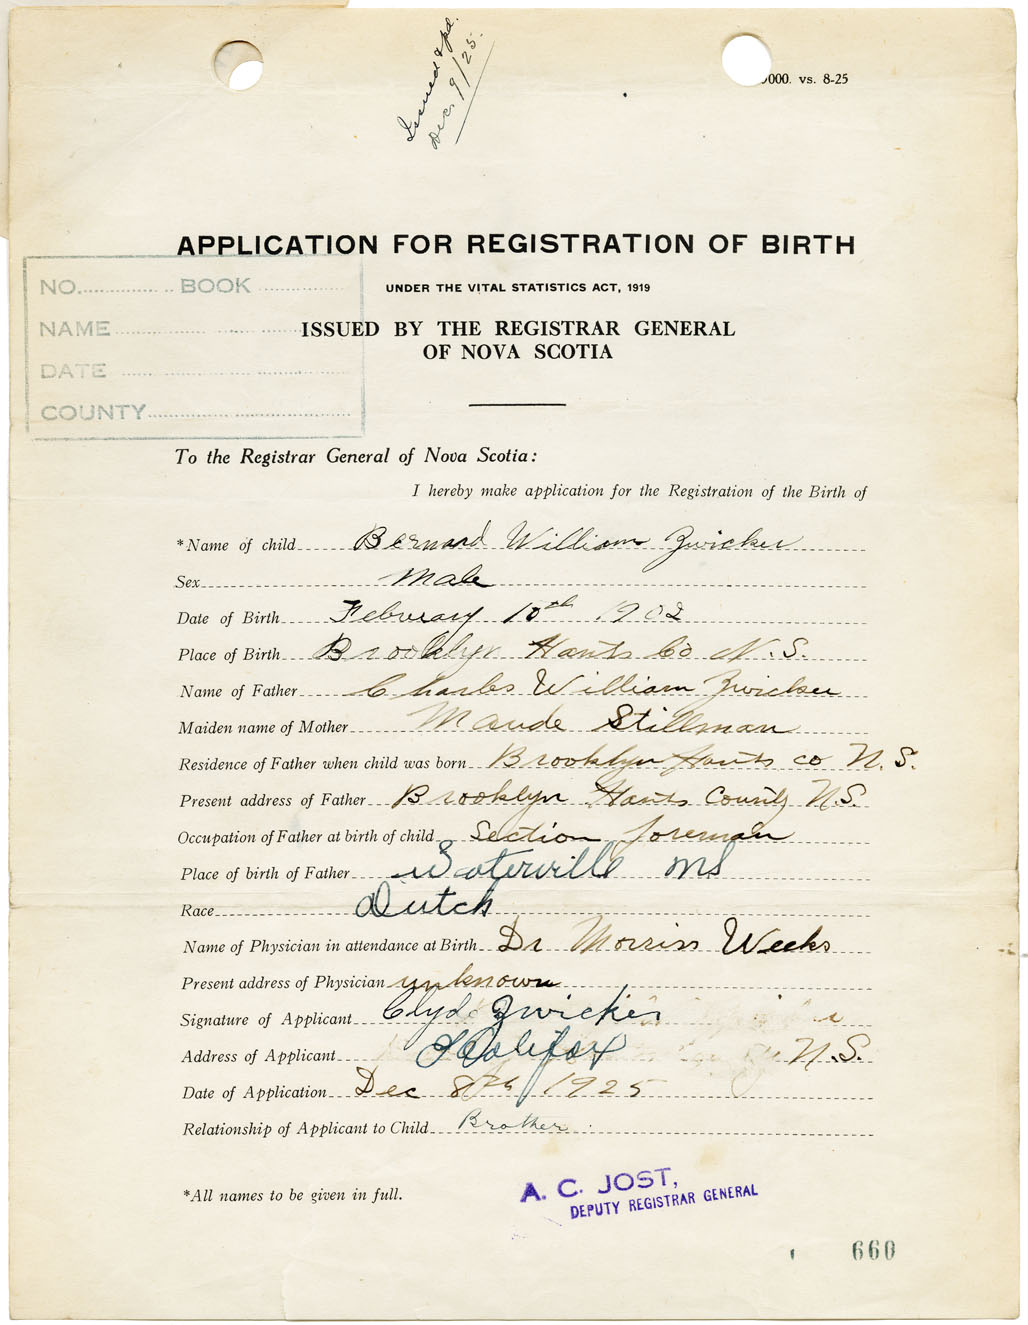 Issued & pd.
Dec. 9/25.
000. vs. 8-25
APPLICATION FOR REGISTRATION OF BIRTH
UNDER THE VITAL STATISTICS ACT, 1919
ISSUED BY THE REGISTRAR GENERAL
OF NOVA SCOTIA
NO. BOOK
NAME
DATE
COUNTY
To the Registrar General of Nova Scotia:
I hereby make application for the Registration of the Birth of
*Name of child Bernard William Zwicker
Sex Male
Date of Birth February 10th 1902
Place of Birth Brooklyn Hants Co N.S.
Name of Father Charles William Zwicker
Maiden name of Mother Maude Stillman
Residence of Father when child was born Brooklyn Hants co N.S.
Present address of Father Brooklyn Hants County N.S.
Occupation of Father at birth of child Section foreman
Place of birth of Father Waterville NS
Race Dutch
Name of Physician in attendance at Birth Dr Morriss Weeks
Present address of Physician unknown
Signature of Applicant Clyde Zwicker
Address of Applicant Halifax N.S.
Date of Application Dec 8th 1925
Relationship of Applicant to Child Brother
*All names to be given in full.
A. C. JOST,
DEPUTY REGISTRAR GENERAL
660